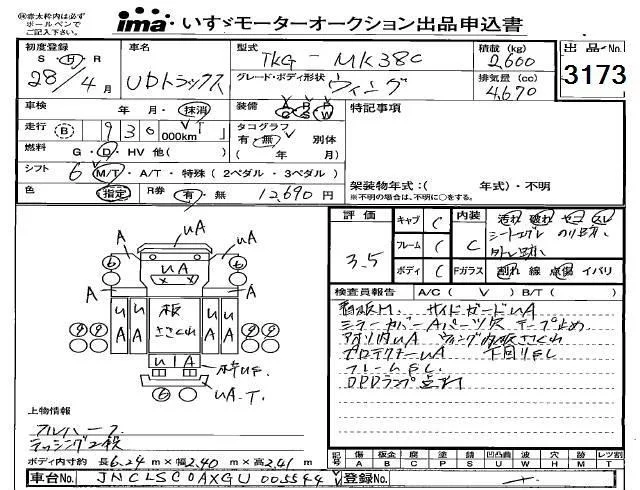 ㊟赤太枠内は必ず
ボールペンで
ご記入下さい
ima いすゞモーターオークション出品申込書
初度登録
S H R
28年4月
車名
UDトラックス
型式
TKG-MK38C
グレード・ボディ形状
ウィング
積載 (kg)
2,600
排気量 (cc)
4,670
出品No.
3173
車検 年・月・抹消
装備 A P S R P W
特記事項
走行 B 930,000km V T
タコグラフ
有・無 別体
( 年 月)
燃料 G・D・HV 他( )
シフト 6 M/T・A/T・特殊 (2ペダル・3ペダル)
色 指定 R券 有・無 12,690円
架装物年式:( 年式)・不明
※不明の場合は、不明に○をする。
評価 3.5
キャブ C
フレーム C
ボディ C
内装 C
汚れ 破れ コゲ スレ
シートコゲレ のり跡
外し跡
Fガラス 割れ 線 点傷 イバリ
検査員報告 A/C ( V ) B/T ( )
サイドガードUA
ミラーカバーAパーツ欠 テープ止め
アオリ内UA ウィング内板ささくれ
プロテクターUA 下回りFC
フレームFC
DPDランプ点灯
A UA UA A
6 UA 6
A A
UA UA 板 ささくれ UA UA
UIA
6 UA.T.
上物情報
フルハーフ
ラッシング2段
ボディ内寸約 長6.24m×幅2.40m×高2.41m
記号 傷A 板金B 腐C 塗P 補S 凹凸曲U 波W 穴H 跡M レツ割T
車台No. JNCLSC0AXGU005544
登録No.